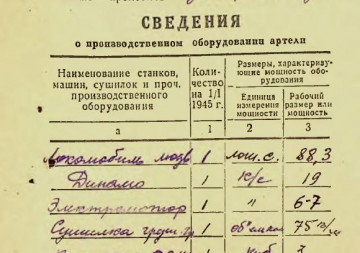 СВЕДЕНИЯ
о производственном оборудовании артели
Наименование станков, машин, сушилок и проч. производственного оборудования
Количество на 1/I 1945 г.
Размеры, характеризующие мощность оборудования
Единица измерения мощности
Рабочий размер или мощность
а 1 2 3
Локомобиль 1 лош. с. 88,3
Динамо 1 к/с 19
Электромотор 1 " 6-7
Сушилка 1 75